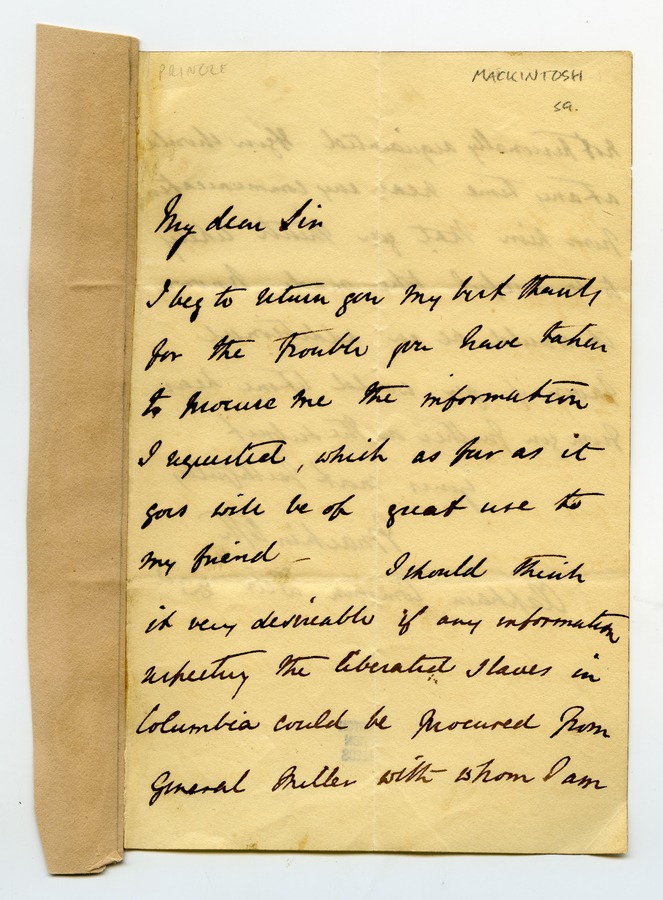 PRINGLE
MACKINTOSH
59.
My dear Sir
I beg to return you my best thanks
for the trouble you have taken
to procure me the information
I requested, which as far as it
goes will be of great use to
my friend – I should think
it very desireable if any information
respecting the liberated Slaves in
Columbia could be procured from
General Miller with whom I am